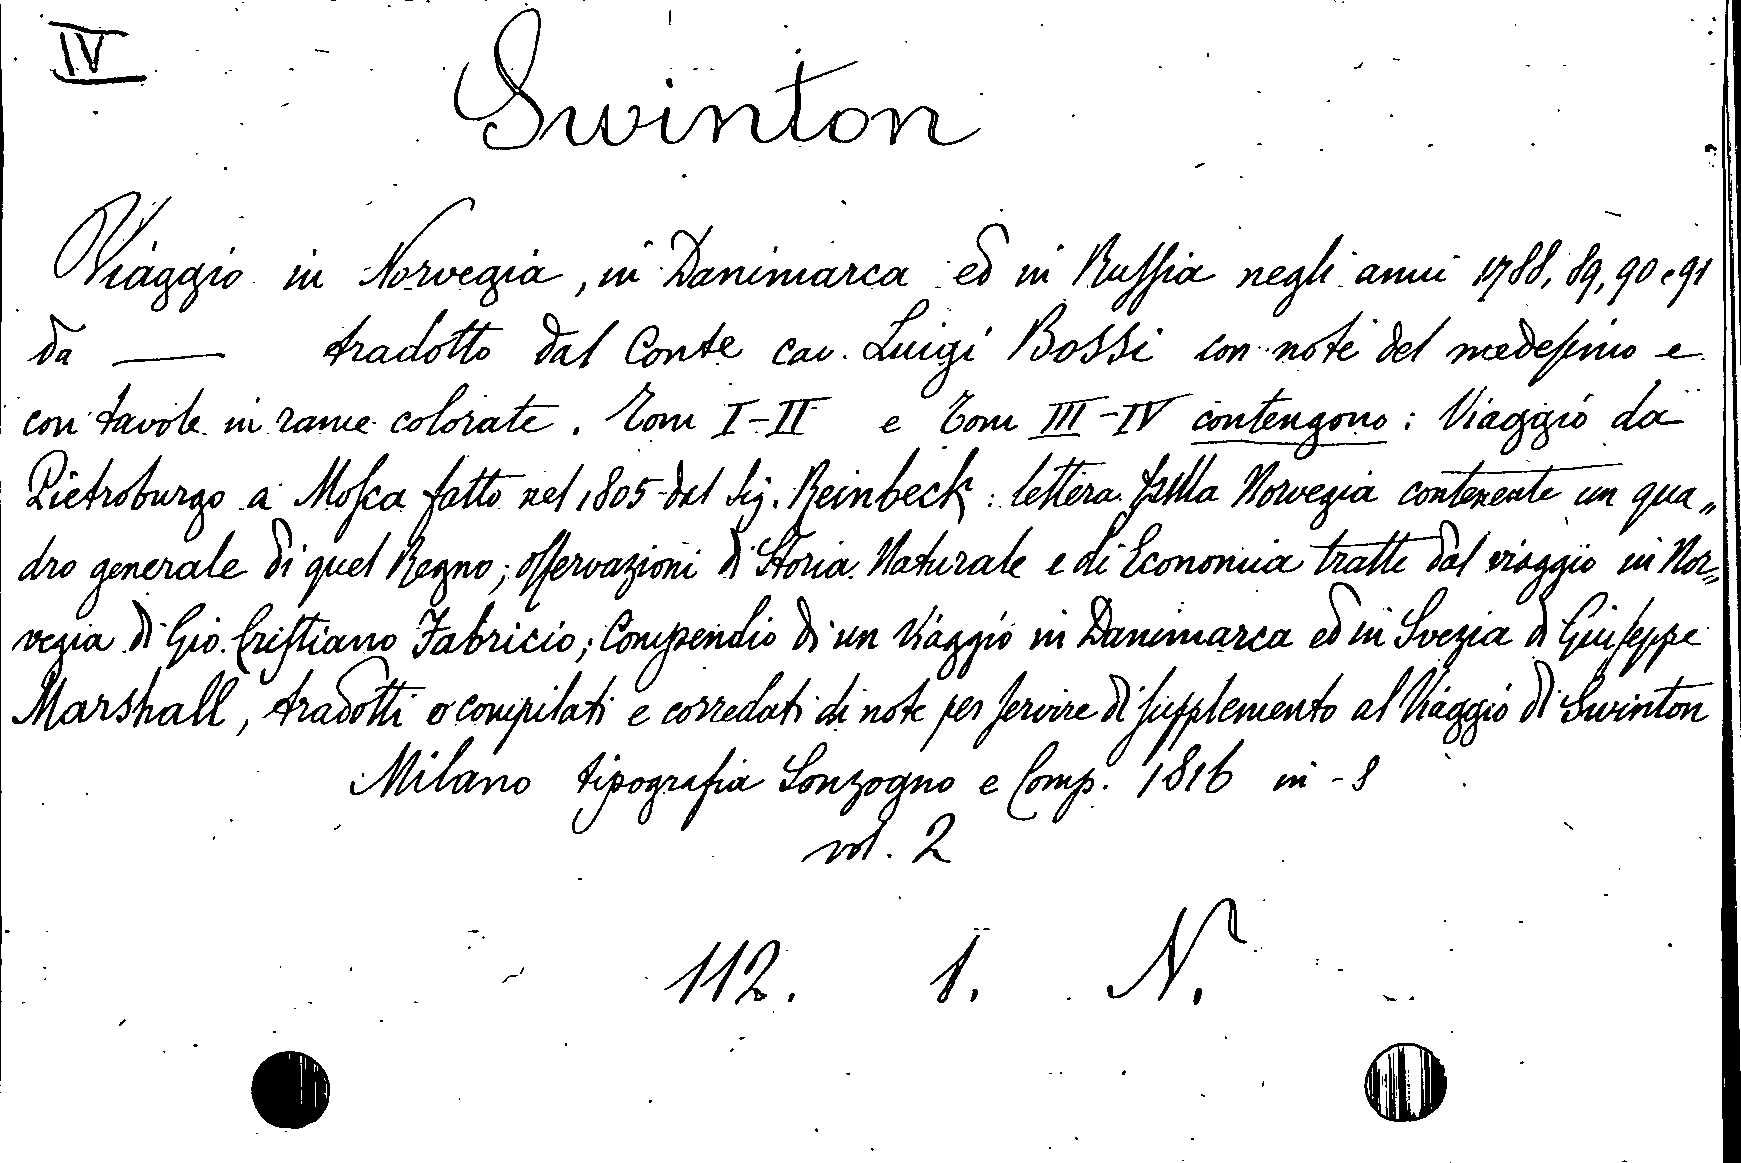 IV
Swinton
Viaggio in Norvegia, in Danimarca ed in Russia negli anni 1788, 89, 90 e 91
da ——— tradotto dal Conte cav. Luigi Bossi con note del medesimo e
con tavole in rame colorate. Tom I-II e Tom III-IV contengono: Viaggio da
Pietroburgo a Mosca fatto nel 1805 dal Sig. Reinbeck: lettera sulla Norvegia contenente un qua„
dro generale di quel Regno; osservazioni di Storia Naturale e di Economia tratte dal viaggio in Nor„
vegia di Gio. Cristiano Fabricio; Compendio di un Viaggio in Danimarca ed in Svezia di Giuseppe
Marshall, tradotti o compilati e corredati di note per servire di supplemento al Viaggio di Swinton
Milano tipografia Sonzogno e Comp. 1816 in-8
vol. 2
112. 1. N.